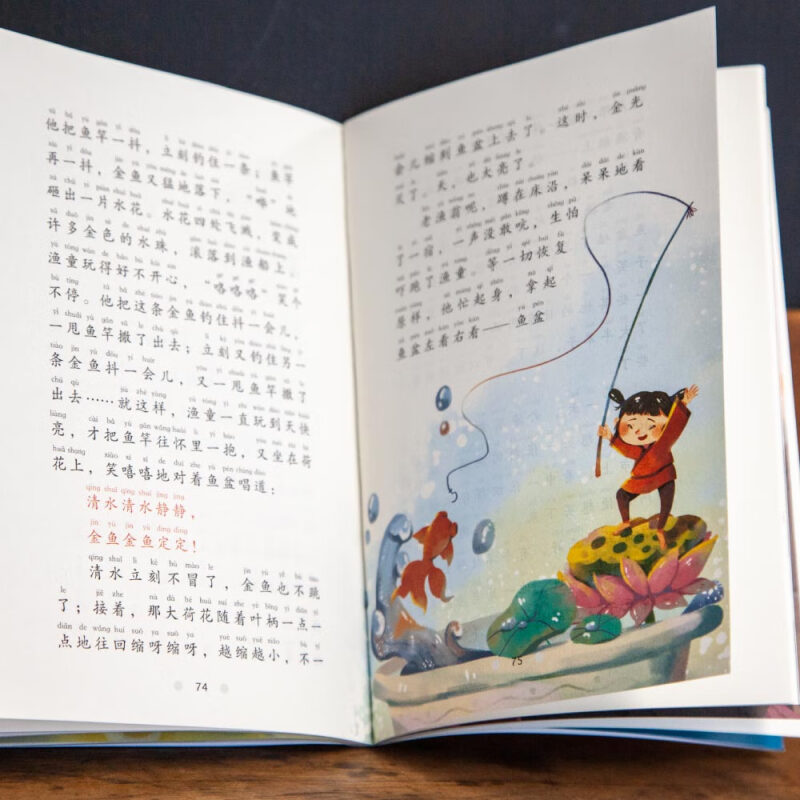 他把鱼竿一抖，立刻钓住一条；鱼竿
再一抖，金鱼又猛地落下，“哗”地
砸出一片水花。水花四处飞溅，变成
许多金色的水珠，滚落到渔船上。
渔童玩得好不开心，“咯咯咯”笑个
不停。他把这条金鱼钓住抖一会儿，
一甩鱼竿撒了出去；立刻又钓住另一
条金鱼抖一会儿，又一甩鱼竿撒了
出去……就这样，渔童一直玩到天快
亮，才把鱼竿往怀里一抱，又坐在荷
花上，笑嘻嘻地对着鱼盆唱道：
清水清水静静，
金鱼金鱼定定！
清水立刻不冒了，金鱼也不跳
了；接着，那大荷花随着叶柄一点一
点地往回缩呀缩呀，越缩越小，不一
74
会儿缩到鱼盆上去了。这时，金光
灭了。天，也大亮了。
老渔翁呢，蹲在床沿，呆呆地看
了一宿，一声没敢吭，生怕
吓跑了渔童。等一切恢复
原样，他忙起身，拿起
鱼盆左看右看——鱼盆
75